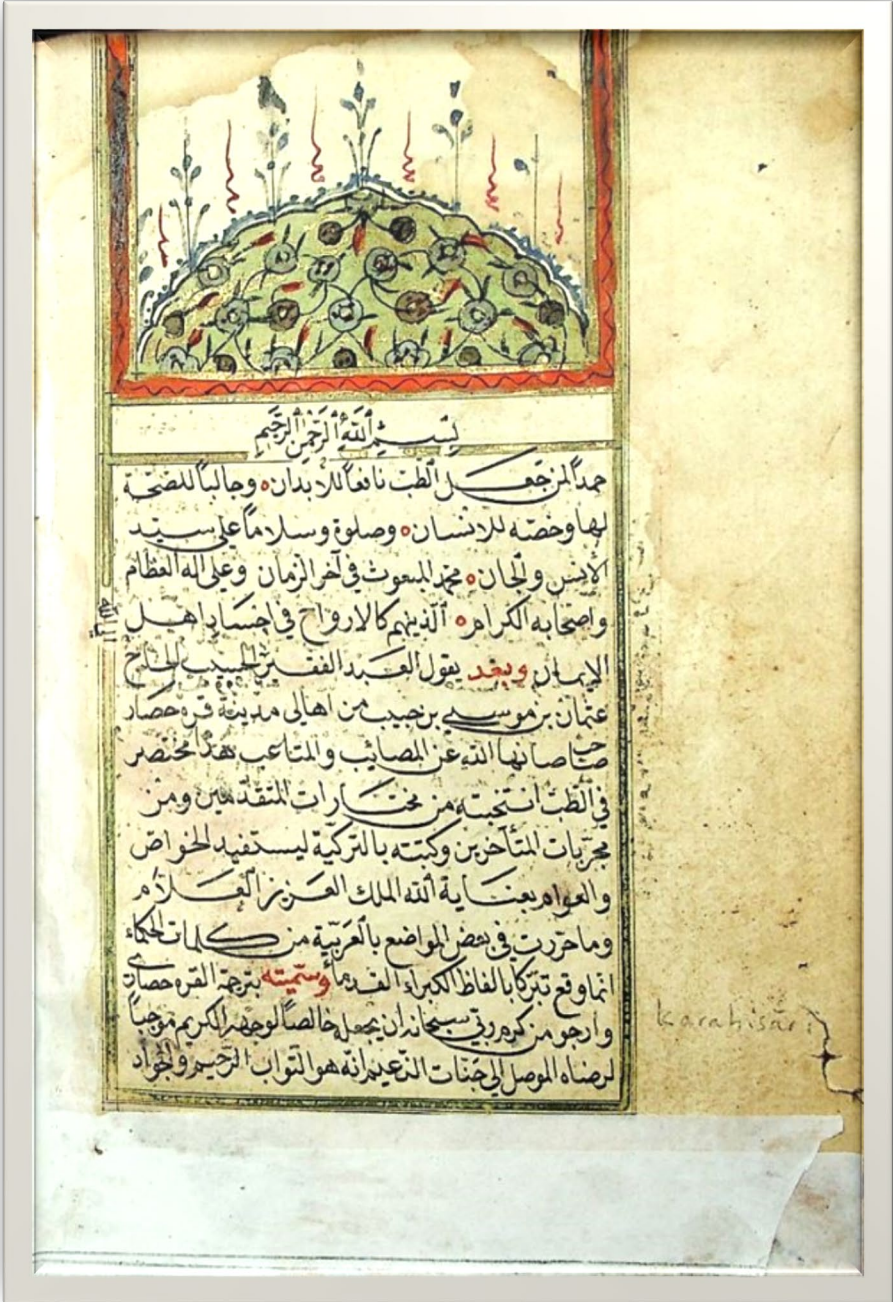 بِسْمِ اللهِ الرَّحْمنِ الرَّحِيمِ
حمداً لمن جعل الطب نافعاً للابدان وجالباً للصحة
لها وخصه للانسان وصلوة وسلاماً على سيد
الانس والجان محمد المبعوث فى آخر الزمان وعلى اله العظام
واصحابه الكرام الذينهم كالارواح فى اجساد اهل
الايمان وبعد يقول العبد الفقير الحاج
عثمان بن موسى بن حبيب من اهالى مدينة قره حصار
صاحب صانها الله عن المصائب والمتاعب هذا مختصر
فى الطب انتخبته من مختارات المتقدمين ومن
مجربات المتأخرين وكتبته بالتركية ليستفيد الخواص
والعوام بعناية الله الملك العزيز العلام
وما حررت فى بعض المواضع بالعربية من كلمات الحكماء
انما وقع تبركا بالفاظ الكبراء القدماء وسميته بترجمة القره حصارى
وارجو من كرم ربى سبحانه ان يجعله خالصاً لوجهه الكريم موجباً
لرضاه الموصل الى جنات النعيم انه هو التواب الرحيم والجواد
karahisari